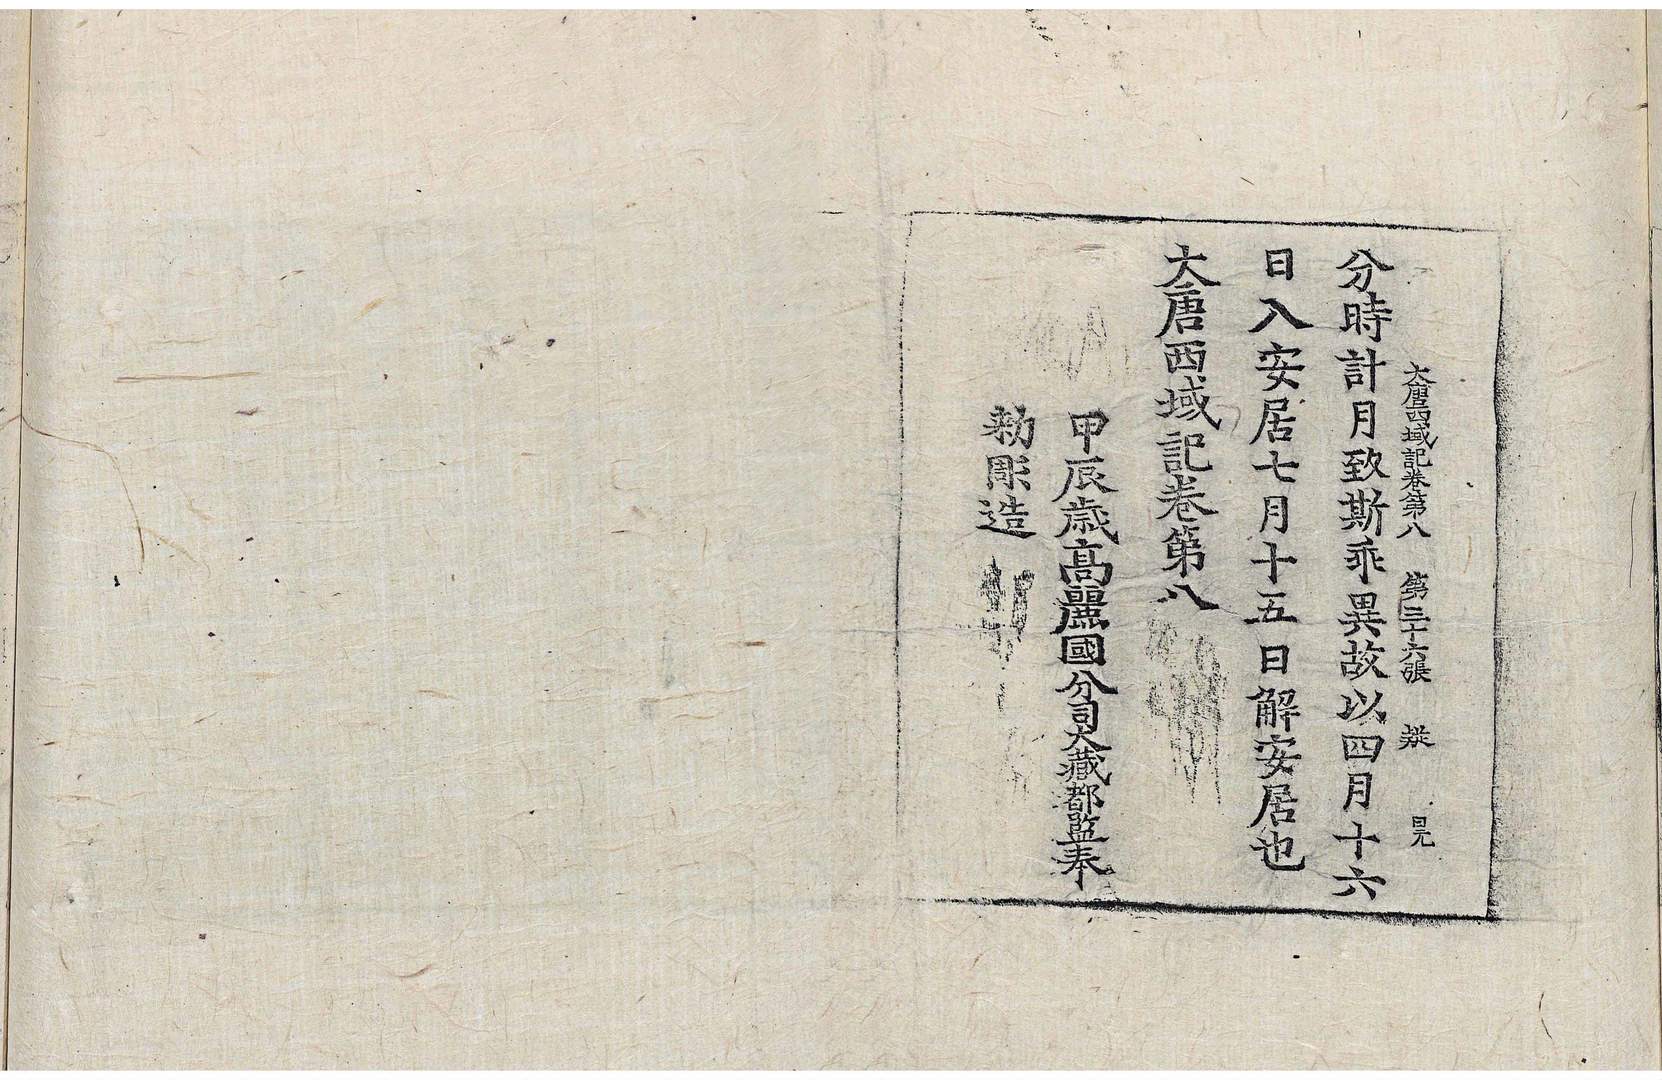 大唐西域記卷第八 第三十六張
分時計月致斯乖異故以四月十六
日入安居七月十五日解安居也
大唐西域記卷第八
甲辰歳高麗國分司大藏都監奉
勑彫造